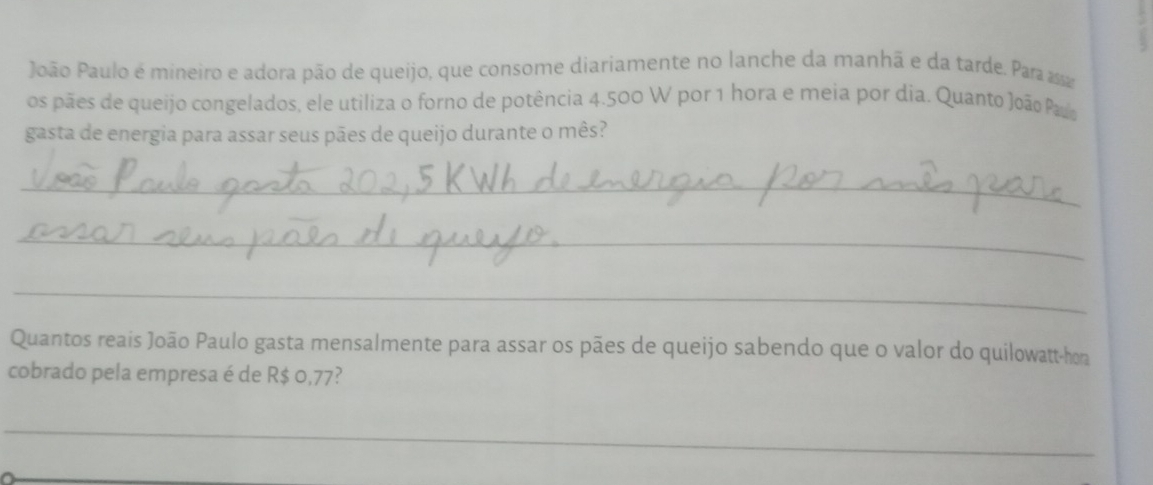 João Paulo é mineiro e adora pão de queijo, que consome diariamente no lanche da manhã e da tarde. Para assar
os pães de queijo congelados, ele utiliza o forno de potência 4.500 W por 1 hora e meia por dia. Quanto João Paulo
gasta de energia para assar seus pães de queijo durante o mês?
João Paulo gasta 202,5 KWh de energia por mês para
assar seus pães de queijo.
Quantos reais João Paulo gasta mensalmente para assar os pães de queijo sabendo que o valor do quilowatt-hora
cobrado pela empresa é de R$ 0,77?